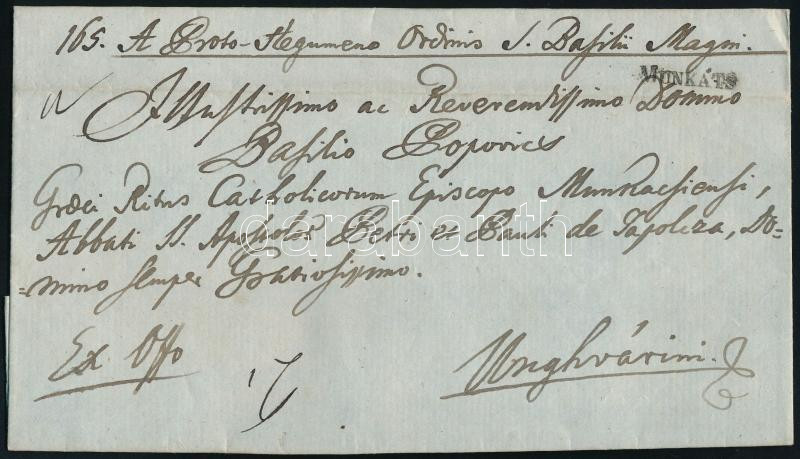 165. A Proto-Hegumeno Ordinis S. Basilii Magni.
MUNKÁTS
Illustrissimo ac Reverendissimo Domino
Basilio Popovics
Græci Ritus Catholicorum Episcopo Munkacsiensi,
Abbati SS. Apostolor Petri et Pauli de Tapolcza, Do=
=mino semper Gratiosissimo.
darabanth
Ex Offo
Unghvárini.